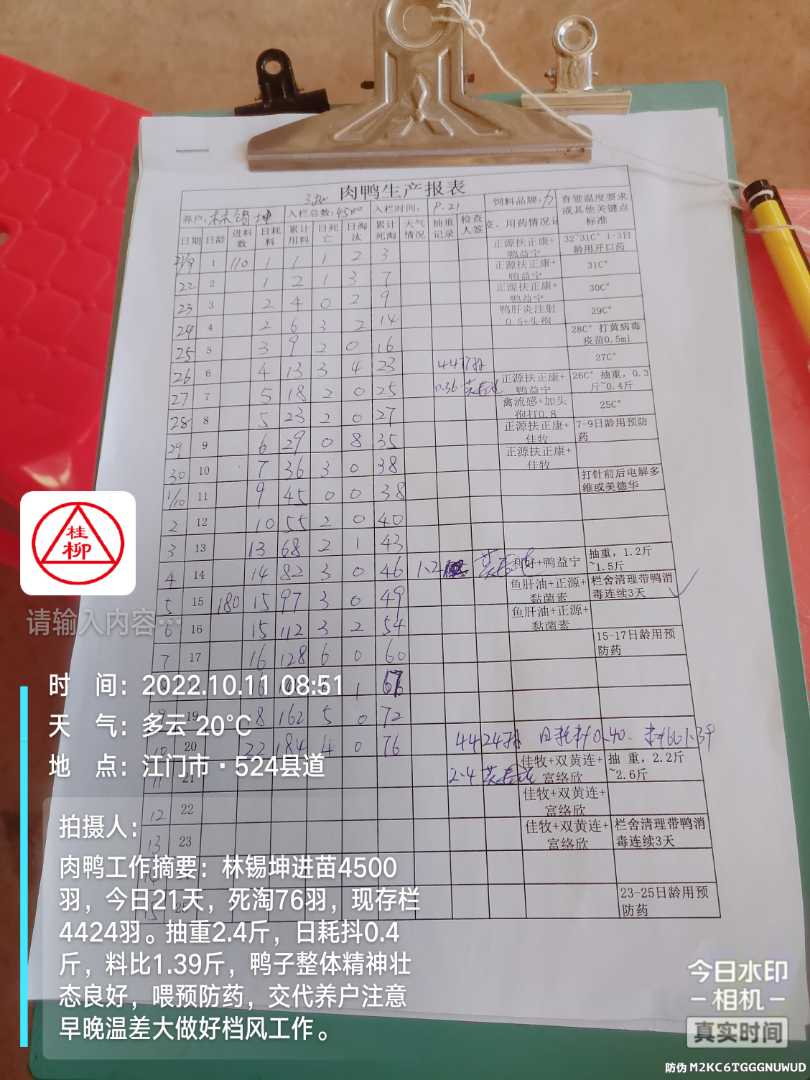 肉鸭生产报表
养户: 林锡坤 入栏总数: 4500 入栏时间: 9.21 饲料品牌: 育雏温度要求或其他关键点标准
日期 日龄 进料数 日耗料 累计用料 日死亡 日淘汰 累计死淘 天气情况 抽重记录 检查人签 用药情况记
21/9 1 110 1 1 1 2 3 正源扶正康+鸭益宁 32~31C° 1-3日龄用开口药
22 2 1 2 1 3 7 正源扶正康+鸭益宁 31C°
23 3 2 4 0 2 9 正源扶正康+鸭益宁 30C°
24 4 2 6 3 2 14 鸭肝炎注射 29C°
25 5 3 9 2 0 16 28C° 打黄病毒疫苗0.5ml
26 6 4 13 3 4 23 27C°
27 7 5 18 2 0 25 0.36 正源扶正康+鸭益宁 26C° 抽重,0.3斤~0.4斤
28 8 5 23 2 0 27 禽流感+加头孢打0.8 25C°
29 9 6 29 0 8 35 正源扶正康+佳牧 7-9日龄用预防药
30 10 7 36 3 0 38 正源扶正康+佳牧
1/10 11 9 45 0 0 38 打针前后电解多维或美德华
2 12 10 55 2 0 40
3 13 13 68 2 1 43
4 14 14 82 3 0 46 1.2 +鸭益宁 抽重,1.2斤~1.5斤
5 15 180 15 97 3 0 49 鱼肝油+正源+黏菌素 栏舍清理带鸭消毒连续3天
6 16 15 112 3 2 54 鱼肝油+正源+黏菌素
7 17 16 128 6 0 60 15-17日龄用预防药
16 1 67
19 8 162 5 0 72
20 22 184 4 0 76 4424 日耗料0.40.
21 2.4 佳牧+双黄连+富络欣 抽 重,2.2斤~2.6斤
12 22 佳牧+双黄连+富络欣
13 23 佳牧+双黄连+富络欣 栏舍清理带鸭消毒连续3天
23-25日龄用预防药
桂柳
请输入内容…
时 间:2022.10.11 08:51
天 气:多云 20℃
地 点:江门市·524县道
拍摄人:
肉鸭工作摘要:林锡坤进苗4500
羽,今日21天,死淘76羽,现存栏
4424羽。抽重2.4斤,日耗抖0.4
斤,料比1.39斤,鸭子整体精神壮
态良好,喂预防药,交代养户注意
早晚温差大做好档风工作。
今日水印
相机
真实时间
防伪 M2KC6TGGGNUWUD